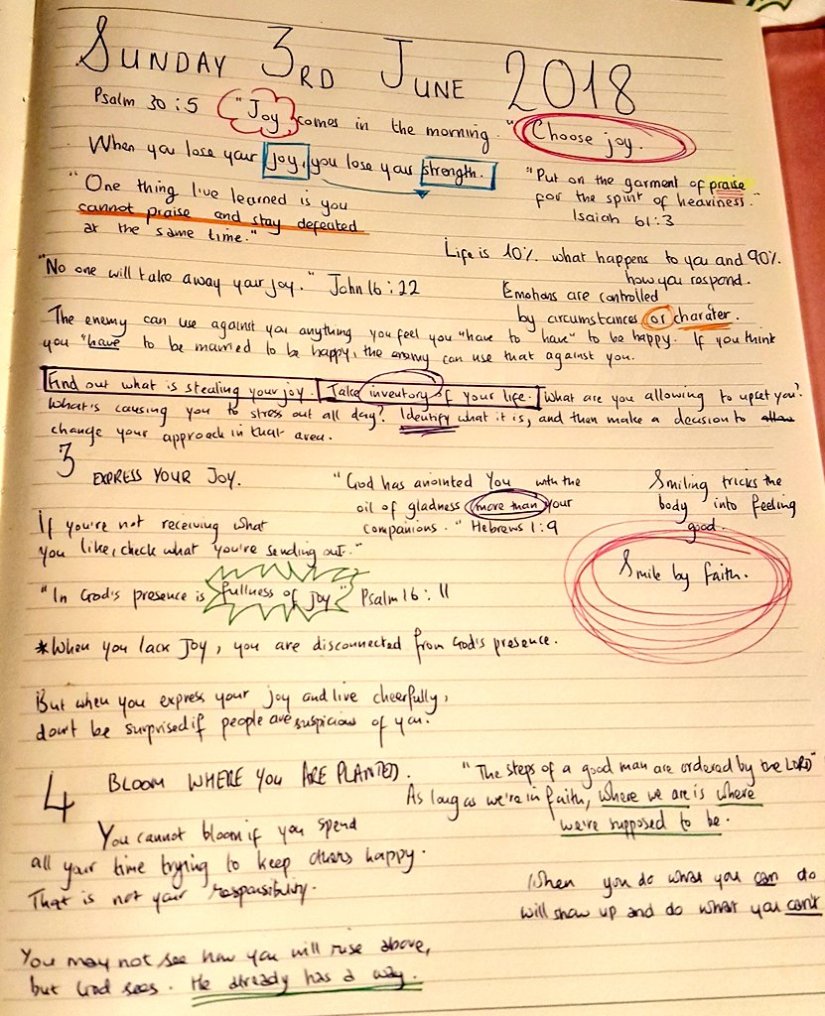 SUNDAY 3RD JUNE 2018
Psalm 30:5 "Joy comes in the morning."
Choose joy.
When you lose your joy, you lose your strength.
"Put on the garment of praise
for the spirit of heaviness."
Isaiah 61:3
"One thing I've learned is you
cannot praise and stay defeated
at the same time."
Life is 10% what happens to you and 90%
how you respond.
"No one will take away your joy." John 16:22
Emotions are controlled
by circumstances or charater.
The enemy can use against you anything you feel you "have to have" to be happy. If you think
you "have to be married to be happy, the enemy can use that against you.
Find out what is stealing your joy. Take inventory of your life. What are you allowing to upset you?
What's causing you to stress out all day? Identify what it is, and then make a decision to allow
change your approach in that area.
3 EXPRESS YOUR JOY.
"God has anointed You with the
oil of gladness more than your
companions." Hebrews 1:9
Smiling tricks the
body into feeling
good.
If you're not receiving what
you like, check what you're sending out."
Smile by faith.
"In God's presence is fullness of joy" Psalm 16:11
*When you lack Joy, you are disconnected from God's presence.
But when you express your joy and live cheerfully,
don't be surprised if people are suspicious of you.
4 BLOOM WHERE YOU ARE PLANTED.
"The steps of a good man are ordered by the LORD"
As long as we're in faith, where we are is where
we're supposed to be.
You cannot bloom if you spend
all your time trying to keep others happy.
That is not your responsibility.
When you do what you can do
will show up and do what you can't
You may not see how you will rise above,
but God sees. He already has a way.